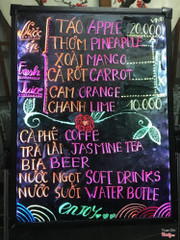 Nước ép
Fresh Juice
TÁO APPLE 20.000
THƠM PINEAPPLE
XOÀI MANGO
CÀ RỐT CARROT
CAM ORANGE
CHANH LIME 10.000
CÀ PHÊ COFFE
TRÀ LÀI JASMINE TEA
BIA BEER
NƯỚC NGỌT SOFT DRINKS
NƯỚC SUỐI WATER BOTLE
enjoy